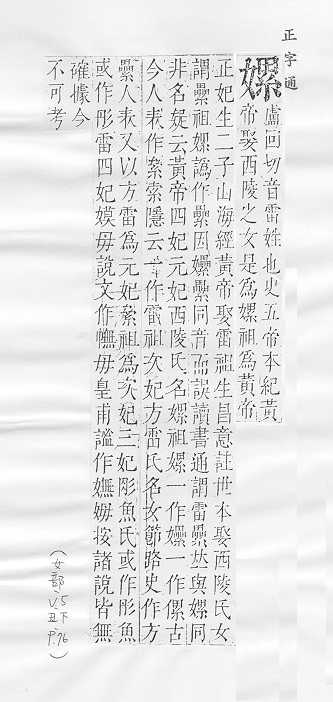 正字通
嫘
盧回切音雷姓也史五帝本紀黃
帝娶西陵之女是爲嫘祖爲黃帝
正妃生二子山海經黃帝娶雷祖生昌意註世本娶西陵氏女
謂纍祖嫘譌作纍因嬫纍同音而誤讀書通謂雷纍𠀤與嫘同
非名疑云黃帝四妃元妃西陵氏名嫘祖嫘一作嬫一作傫古
今人表作絫索隱云一作雷祖次妃方雷氏名女節路史作方
纍人表又以方雷爲元妃絫祖爲次妃三妃彤魚氏或作肜魚
或作彤雷四妃嫫毋說文作㒱毋皇甫謐作嫵㜈按諸說皆無
確據今
不可考
(女部、V.5
丑下
P.76)